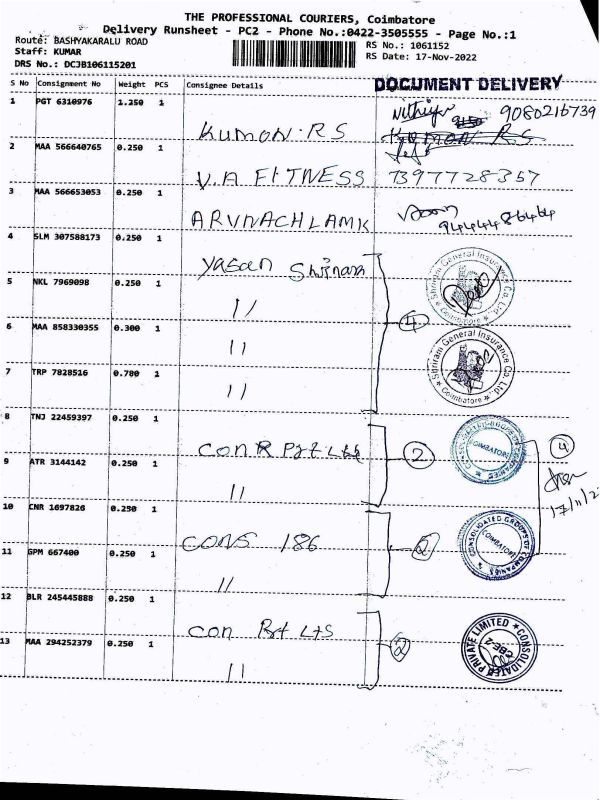 THE PROFESSIONAL COURIERS, Coimbatore
Delivery Runsheet - PC2 - Phone No.:0422-3505555 - Page No.:1
Route: BASHYAKARALU ROAD
RS No.: 1061152
Staff: KUMAR
RS Date: 17-Nov-2022
DRS No.: DCJB106115201
S No Consignment No Weight PCS Consignee Details
DOCUMENT DELIVERY
1 PGT 6310976 1.250 1 Kumon RS 9080216739
2 MAA 566640765 0.250 1 V.A FITNESS 7397728357
3 MAA 566653053 0.250 1 ARVNACHLAMK
4 SLM 307588173 0.250 1
5 NKL 7969098 0.250 1 11
Shriram General Insurance Co. Ltd. Coimbatore
6 MAA 858330355 0.300 1 11
4
7 TRP 7828516 0.780 1 11
Shriram General Insurance Co. Ltd. Coimbatore
8 TNJ 22459397 0.250 1
2
COIMBATORE
4
9 ATR 3144142 0.250 1 11
10 CNR 1697826 0.250 1 CONS 186
CONSOLIDATED GROUPS OF COMPANIES COIMBATORE
11 GPM 667400 0.250 1 11
12 BLR 245445888 0.250 1
13 MAA 294252379 0.250 1 11
2
CONSOLIDATED PRIVATE LIMITED CBE-2